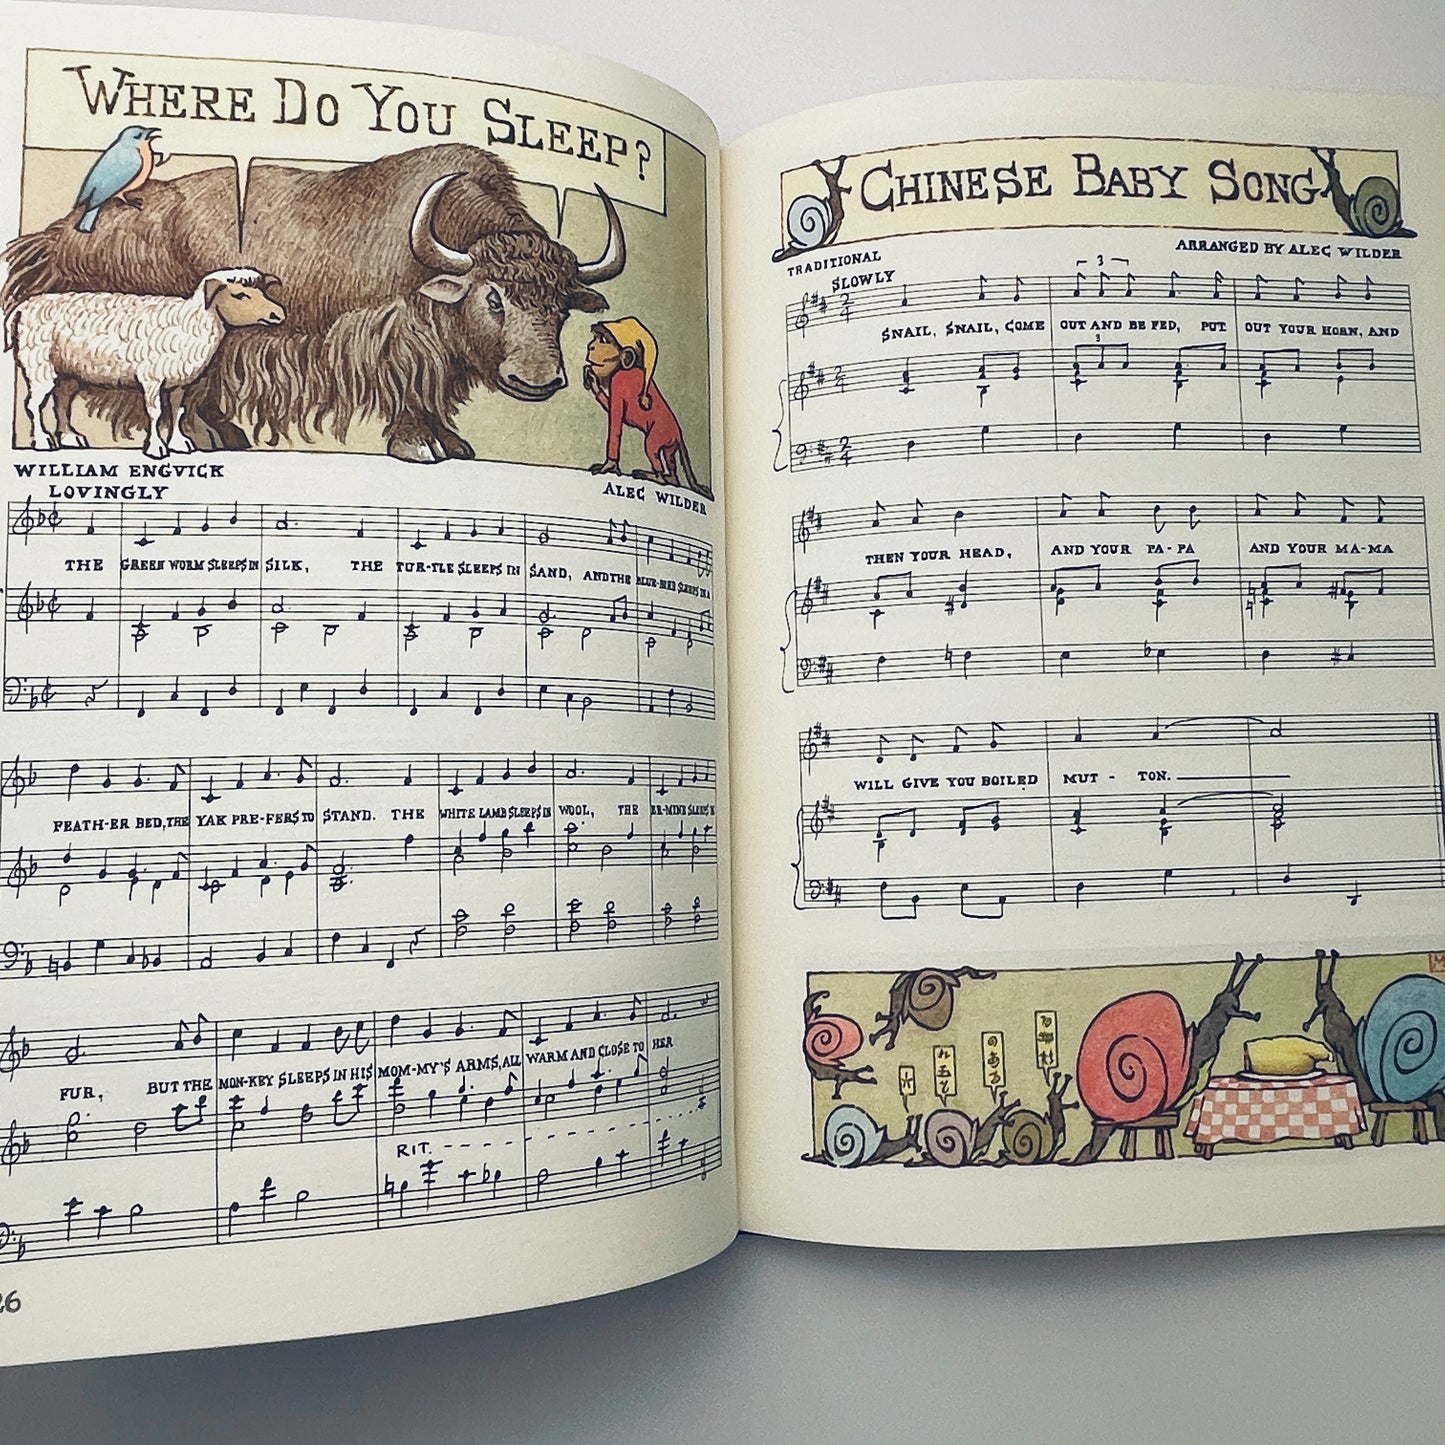 WHERE DO YOU SLEEP?
WILLIAM ENGVICK
LOVINGLY
ALEC WILDER
THE GREEN WORM SLEEPS IN SILK, THE TUR-TLE SLEEPS IN SAND, AND THE BLUE-BIRD SLEEPS IN A
FEATH-ER BED, THE YAK PRE-FERS TO STAND. THE WHITE LAMB SLEEPS IN WOOL, THE ER-MINE SLEEPS IN
FUR, BUT THE MON-KEY SLEEPS IN HIS MOM-MY'S ARMS, ALL WARM AND CLOSE TO HER
RIT.
26
CHINESE BABY SONG
TRADITIONAL
SLOWLY
ARRANGED BY ALEC WILDER
3
2/4
SNAIL, SNAIL, COME OUT AND BE FED, PUT OUT YOUR HORN, AND
3
2/4
2/4
THEN YOUR HEAD, AND YOUR PA-PA AND YOUR MA-MA
WILL GIVE YOU BOILED MUT-TON.
M